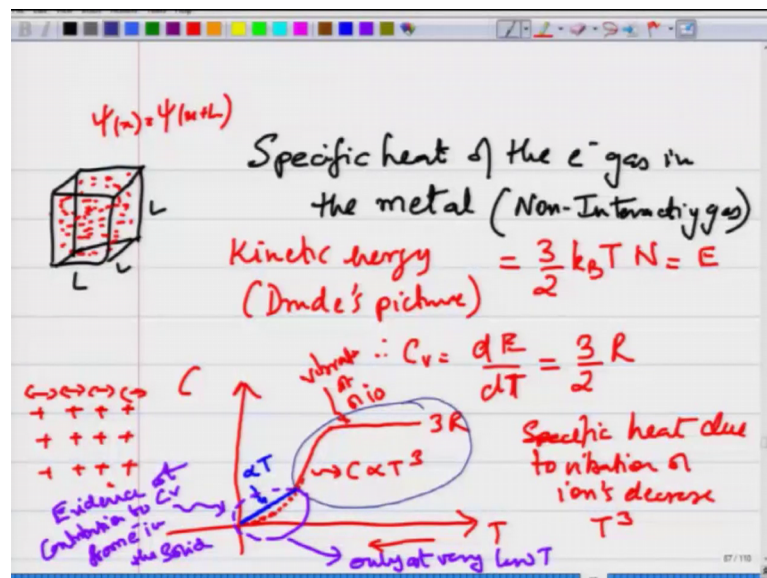 ψ(x) = ψ(x+L)
Specific heat of the e⁻ gas in
the metal (Non-Interacting gas)
L
L
L
Kinetic energy = 3/2 k_B T N = E
(Drude's picture)
∴ C_v = dE/dT = 3/2 R
C
3R
→ C ∝ T³
αT
+ + + +
+ + + +
+ + + +
Specific heat due
to vibration of
ion's decrease
T³
Evidence of
Contribution to Cv
from e⁻ in
the solid
T
only at very low T
87 / 110